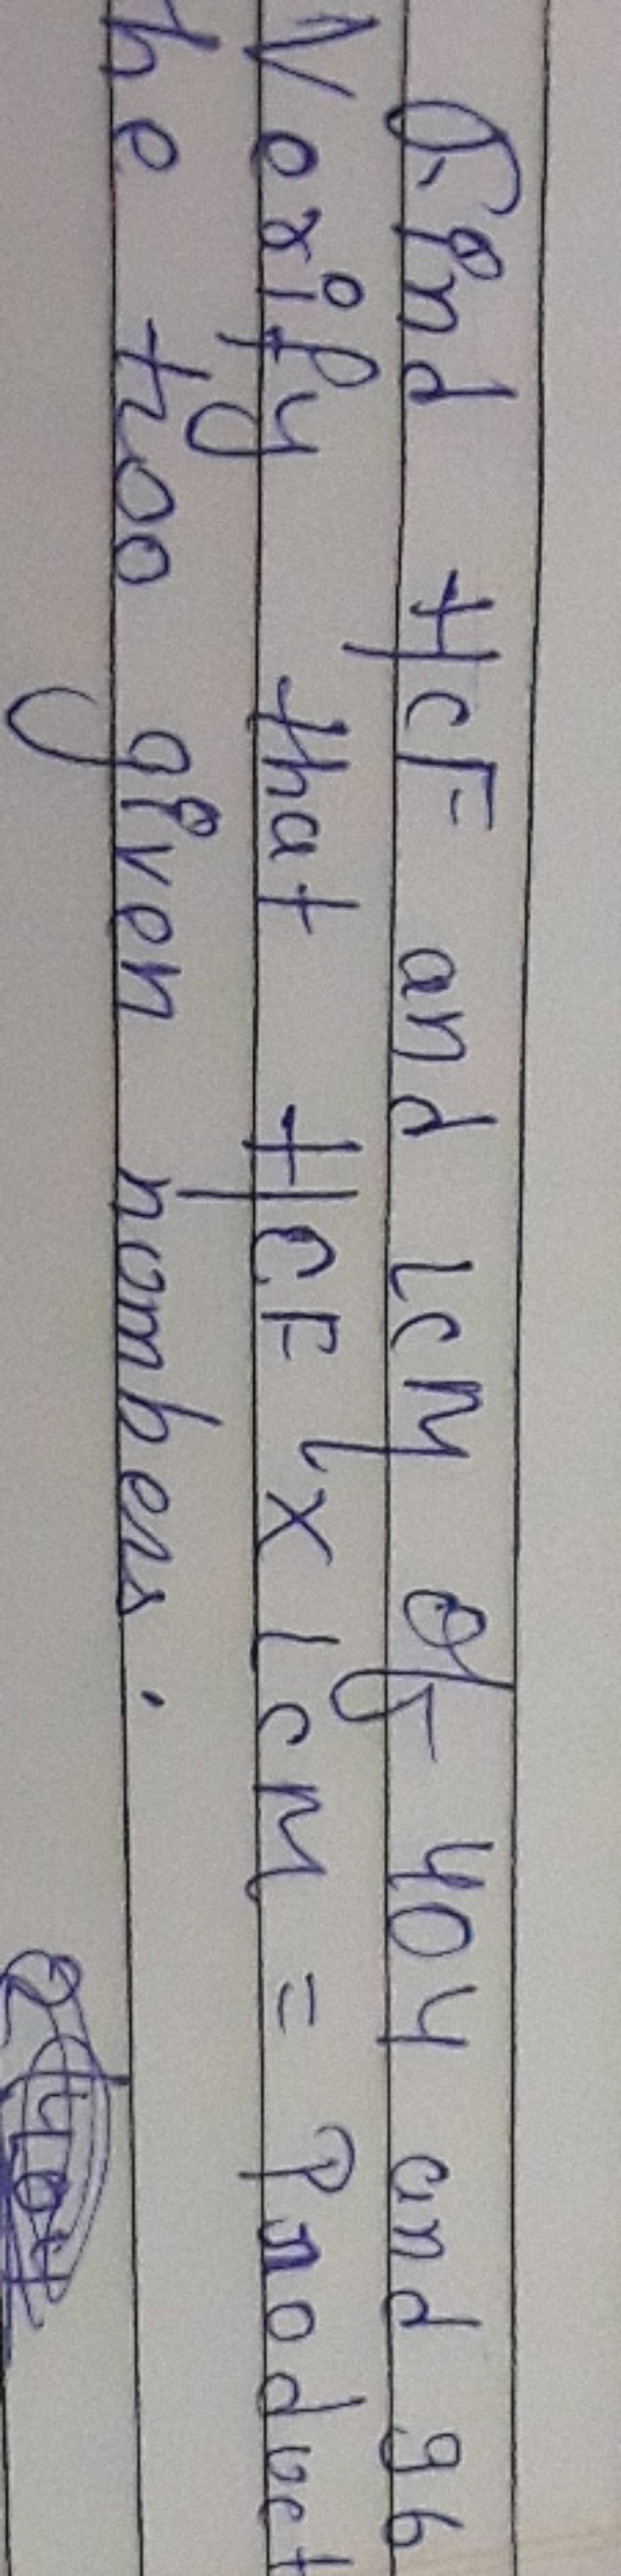 Find HCF and LCM of 404 and 96
Verify that HCF x LCM = Product
he two given nombers.